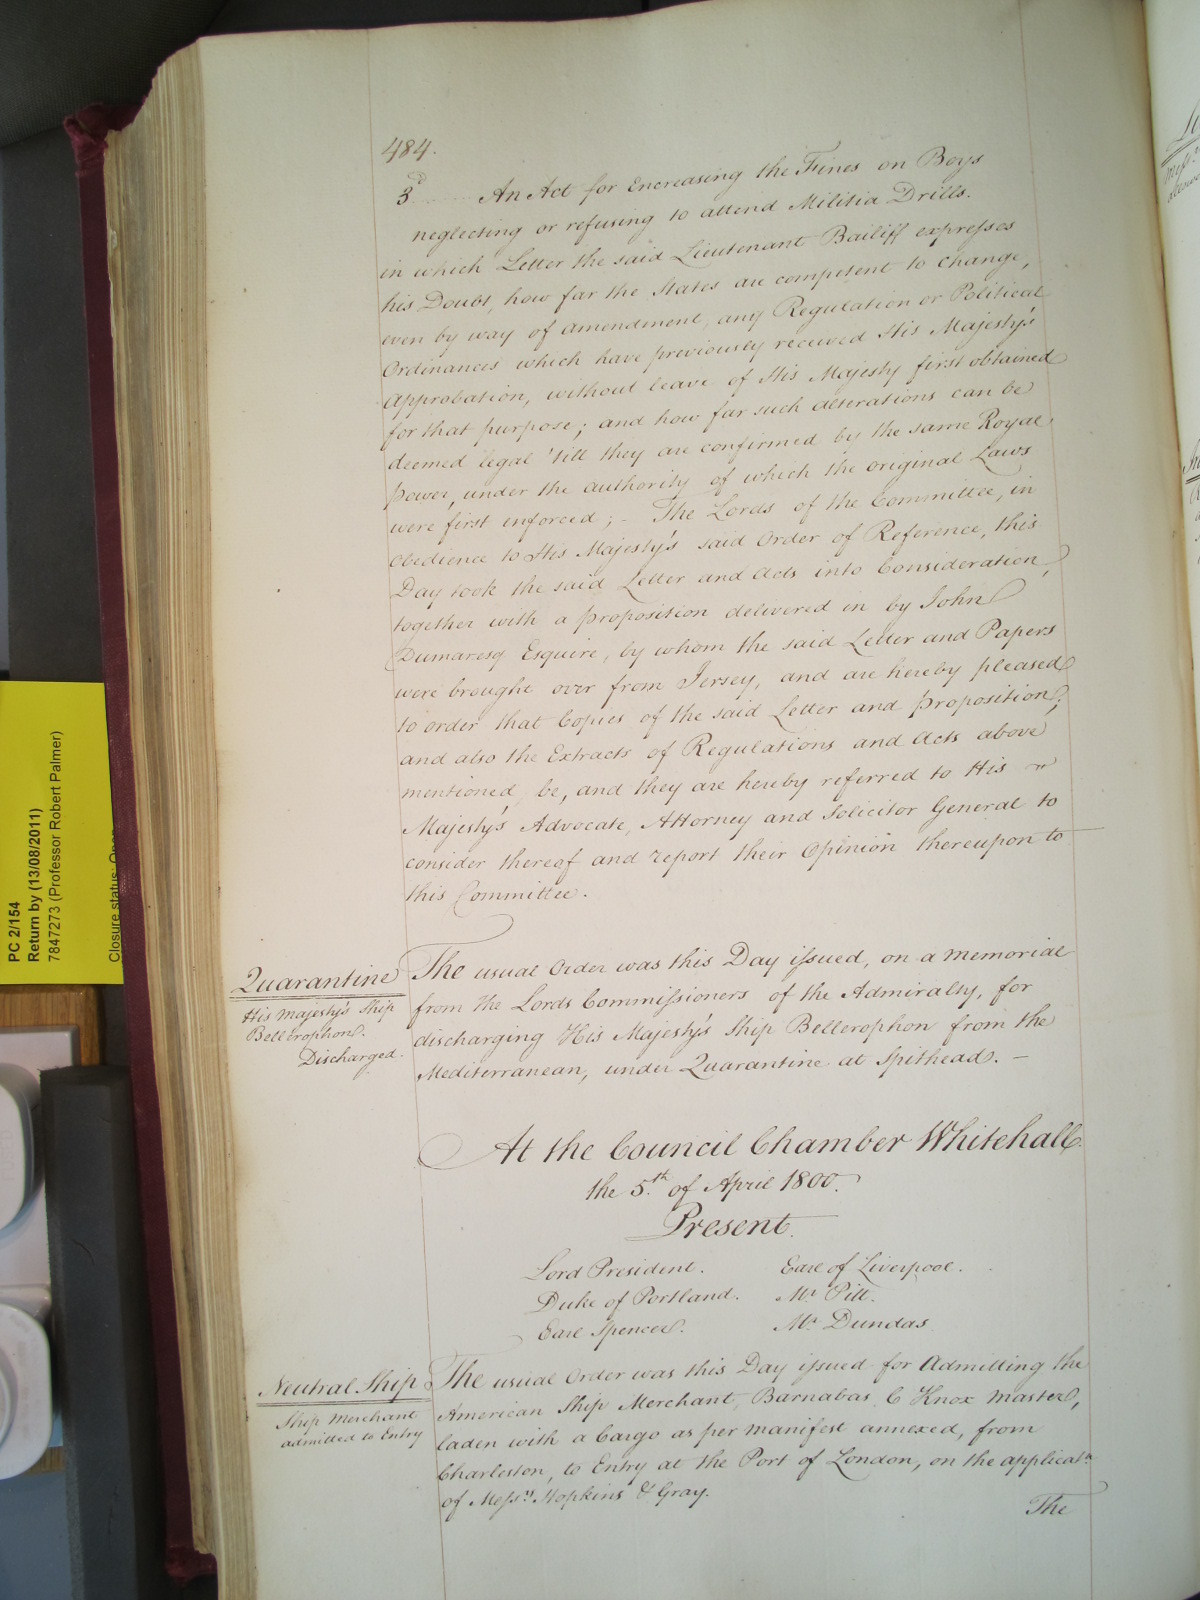 484.
3d An Act for Encreasing the Fines on Boys
neglecting or refusing to attend Militia Drills.
in which Letter the said Lieutenant Bailiff expresses
his Doubt, how far the States are competent to change,
even by way of amendment, any Regulation or Political
Ordinances which have previously received His Majesty's
Approbation, without leave of His Majesty first obtained
for that purpose; and how far such alterations can be
deemed legal 'till they are confirmed by the same Royal
Power, under the authority of which the original Laws
were first enforced; - The Lords of the Committee, in
obedience to His Majesty's said Order of Reference, this
Day took the said Letter and Acts into Consideration,
together with a proposition delivered in by John
Dumaresq Esquire, by whom the said Letter and Papers
were brought over from Jersey, and are hereby pleased
to order that Copies of the said Letter and Proposition,
and also the Extracts of Regulations and Acts above
mentioned be, and they are hereby referred to His
Majesty's Advocate, Attorney and Solicitor General to
consider thereof and report their Opinion thereupon to
this Committee.
Quarantine
His Majesty's Ship
Bellerophon.
Discharged.
The usual Order was this Day issued, on a memorial
from the Lords Commissioners of the Admiralty, for
discharging His Majesty's Ship Bellerophon from the
Mediterranean, under Quarantine at Spithead. -
At the Council Chamber Whitehall
the 5th of April 1800.
Present.
Lord President. Earl of Liverpool.
Duke of Portland. Mr Pitt.
Earl Spencer. Mr Dundas
Neutral Ship
Ship Merchant
admitted to Entry
The usual Order was this Day issued for Admitting the
American Ship Merchant, Barnabas C Knox Master,
laden with a Cargo as per manifest annexed, from
Charleston, to Entry at the Port of London, on the applicatn
of Messrs Hopkins & Gray.
The
PC 2/154
Return by (13/08/2011)
7847273 (Professor Robert Palmer)
Closure status: Open